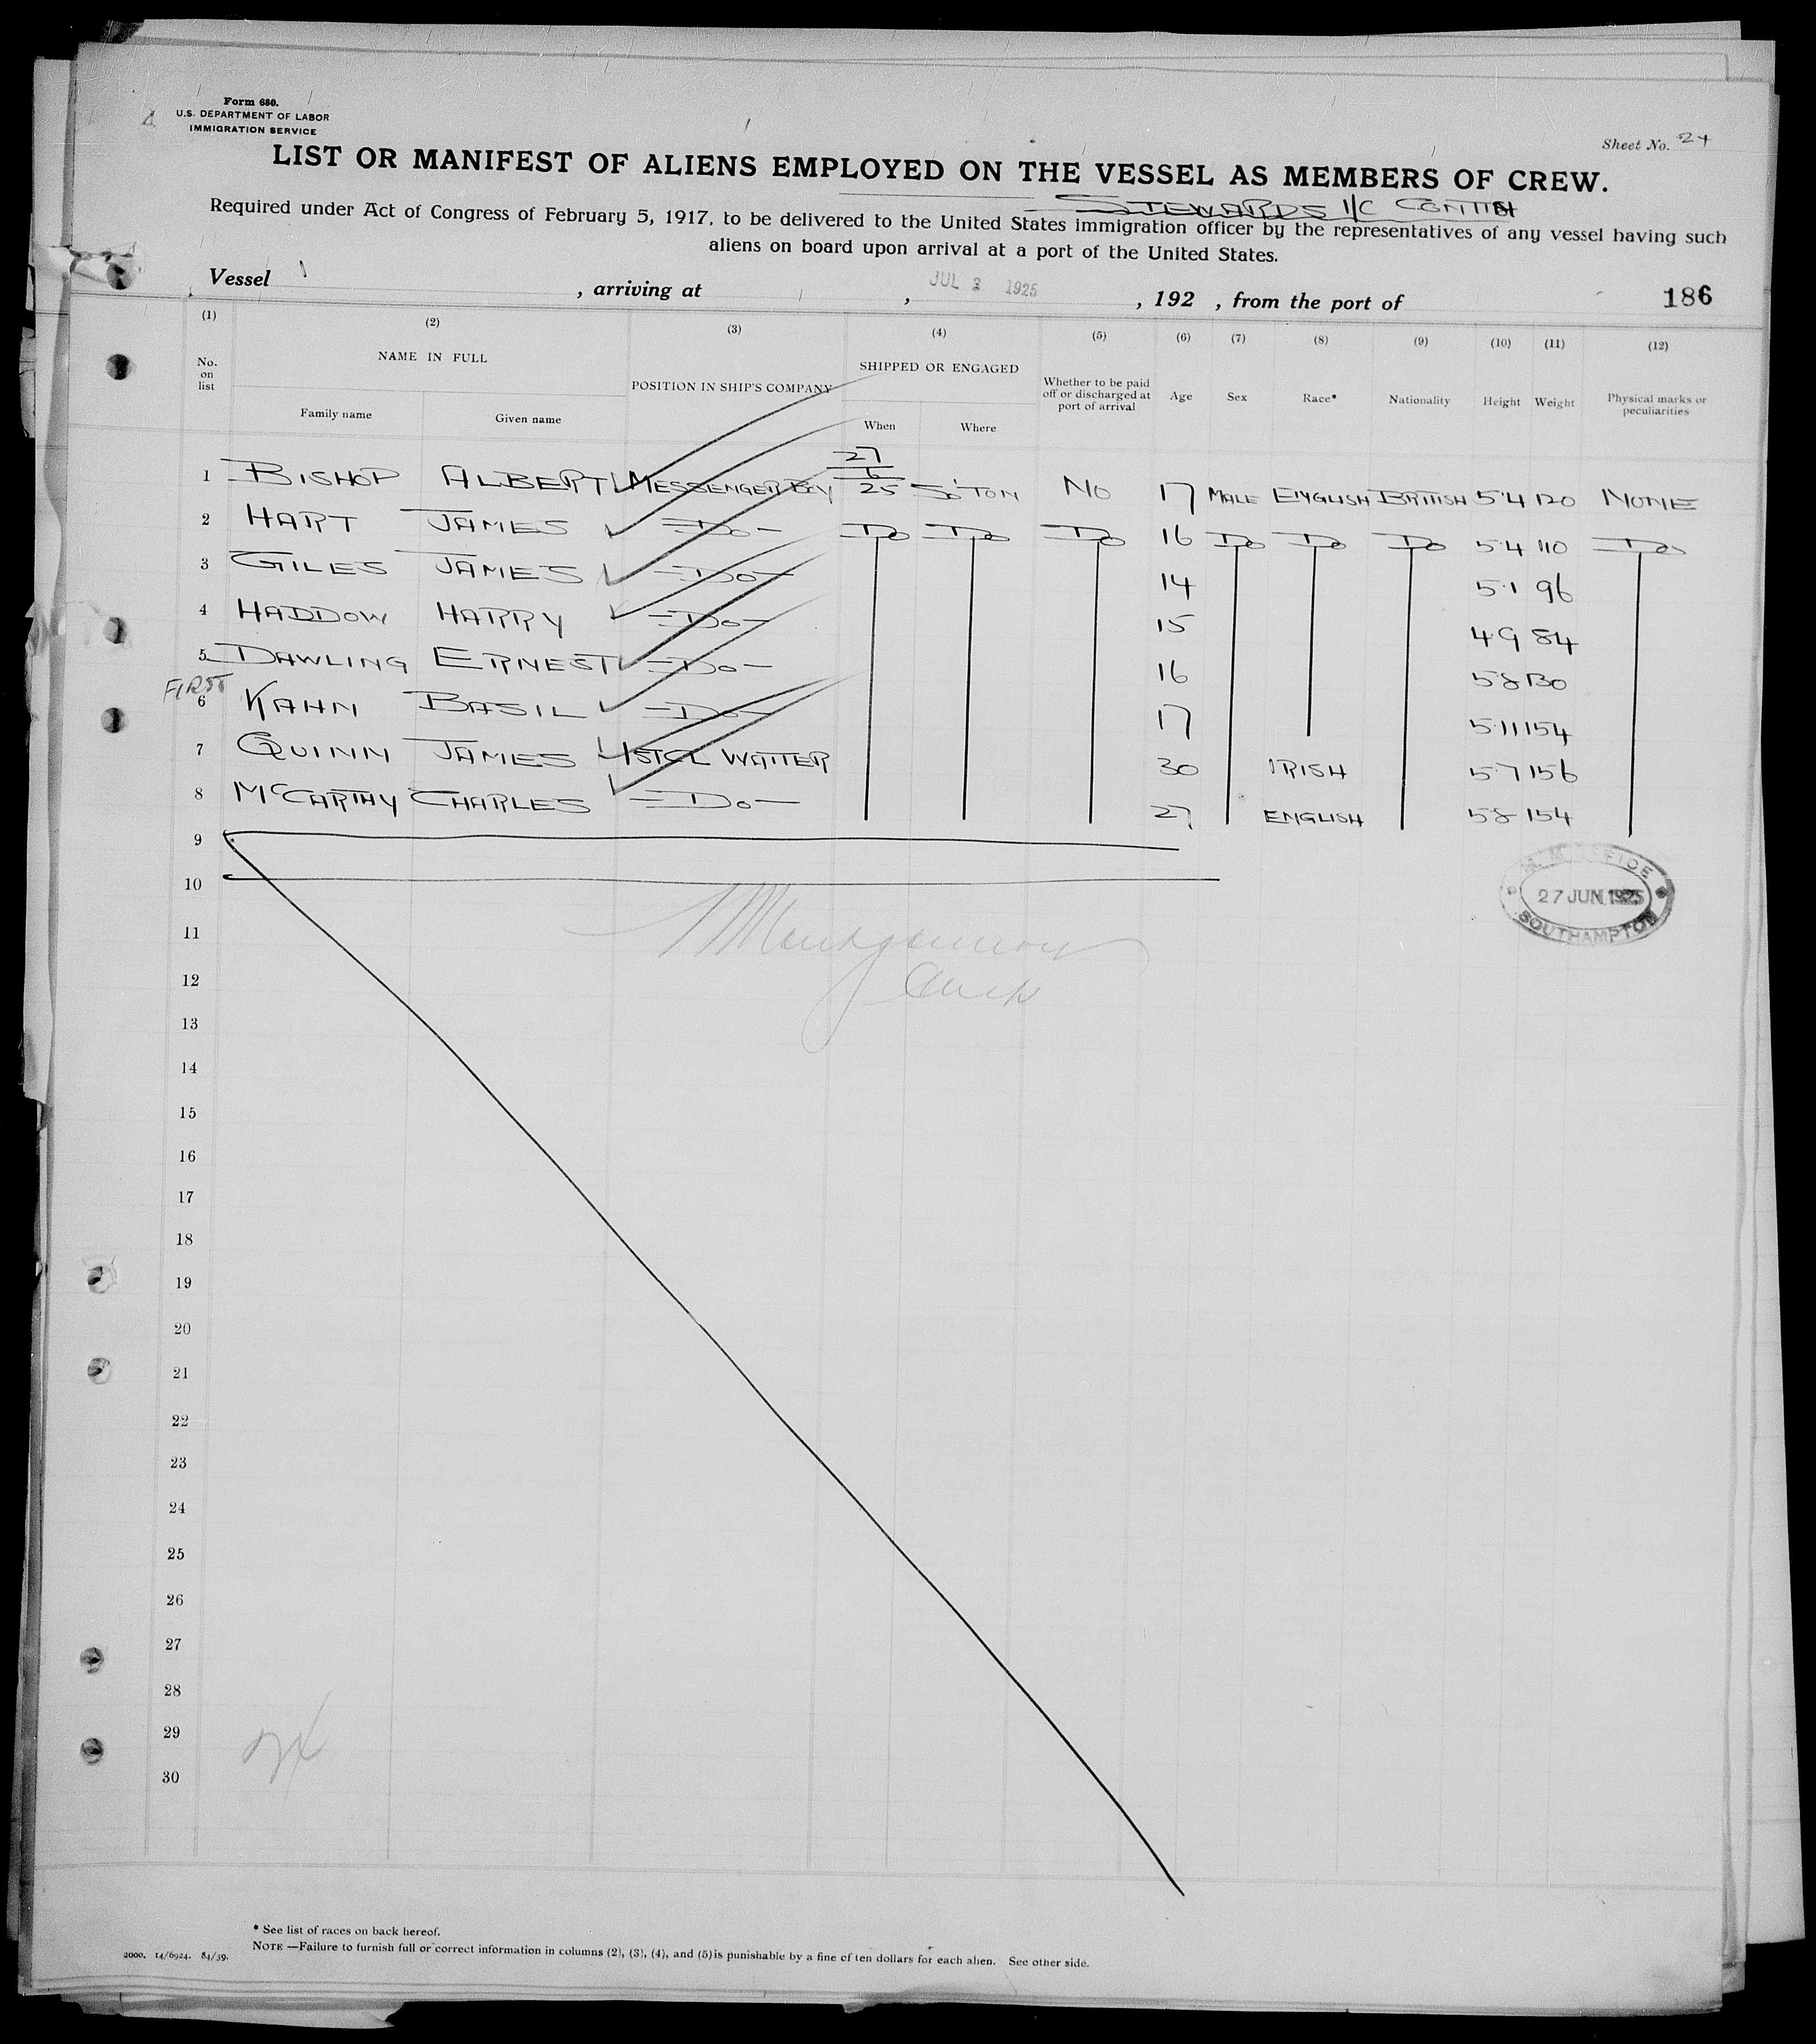 Form 680.
U.S. DEPARTMENT OF LABOR
IMMIGRATION SERVICE
Sheet No. 24
LIST OR MANIFEST OF ALIENS EMPLOYED ON THE VESSEL AS MEMBERS OF CREW.
STEWARDS 1/C
Required under Act of Congress of February 5, 1917, to be delivered to the United States immigration officer by the representatives of any vessel having such
aliens on board upon arrival at a port of the United States.
Vessel , arriving at , JUL 3 1925 , 192 , from the port of 186
(1) (2) (3) (4) (5) (6) (7) (8) (9) (10) (11) (12)
No. on list NAME IN FULL POSITION IN SHIP'S COMPANY SHIPPED OR ENGAGED Whether to be paid off or discharged at port of arrival Age Sex Race* Nationality Height Weight Physical marks or peculiarities
Family name Given name When Where
1 BISHOP ALBERT MESSENGER BOY 27/6/25 So'TON No 17 MALE ENGLISH BRITISH 5.4 120 NONE
2 HART JAMES -Do- Do Do Do 16 Do Do Do 5.4 110 Do
3 GILES JAMES -Do- 14 5.1 96
4 HADDOW HARRY -Do- 15 4.9 84
5 DAWLING ERNEST -Do- 16 5.8 130
FIRST
6 KAHN BASIL -Do- 17 5.11 154
7 QUINN JAMES 1ST CL WAITER 30 IRISH 5.7 156
8 McCARTHY CHARLES -Do- 27 ENGLISH 5.8 154
9
10
27 JUN 1925
SOUTHAMPTON
11
12
13
14
15
16
17
18
19
20
21
22
23
24
25
26
27
28
29
30
* See list of races on back hereof.
NOTE —Failure to furnish full or correct information in columns (2), (3), (4), and (5) is punishable by a fine of ten dollars for each alien. See other side.
2000. 14/6924. 84/39.